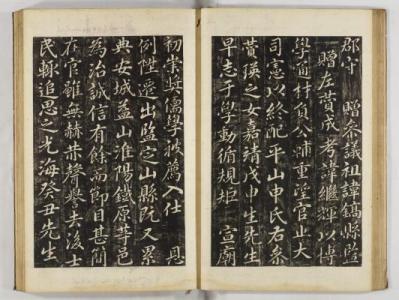 郡守 贈參議祖諱鎬縣監
贈左賛成考諱繼輝以博
學通材負公輔重望官止大
司憲以終配平山申氏右參
賛瑛之女嘉靖戊申生先生
早志于學動循規矩 宣廟
初崇奬儒學被薦入仕 恩
例陞遷出監定山縣既又累
典安城益山淮陽鐵原等邑
為治誠信有餘而節目甚簡
在官雖無赫聲譽去後士
民輒追思之光海癸丑先生